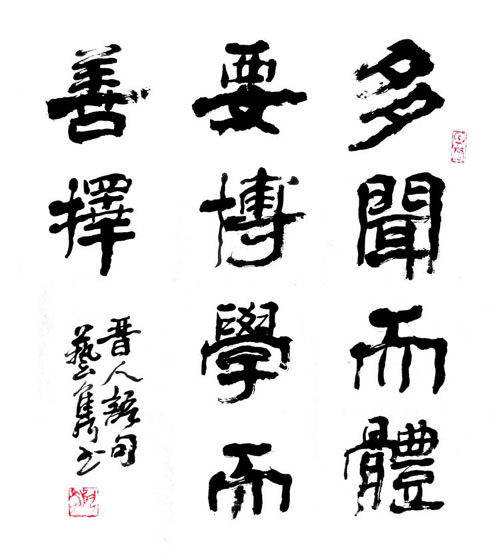 多聞而體
要博學而
善擇
晋人語句
藝雋书